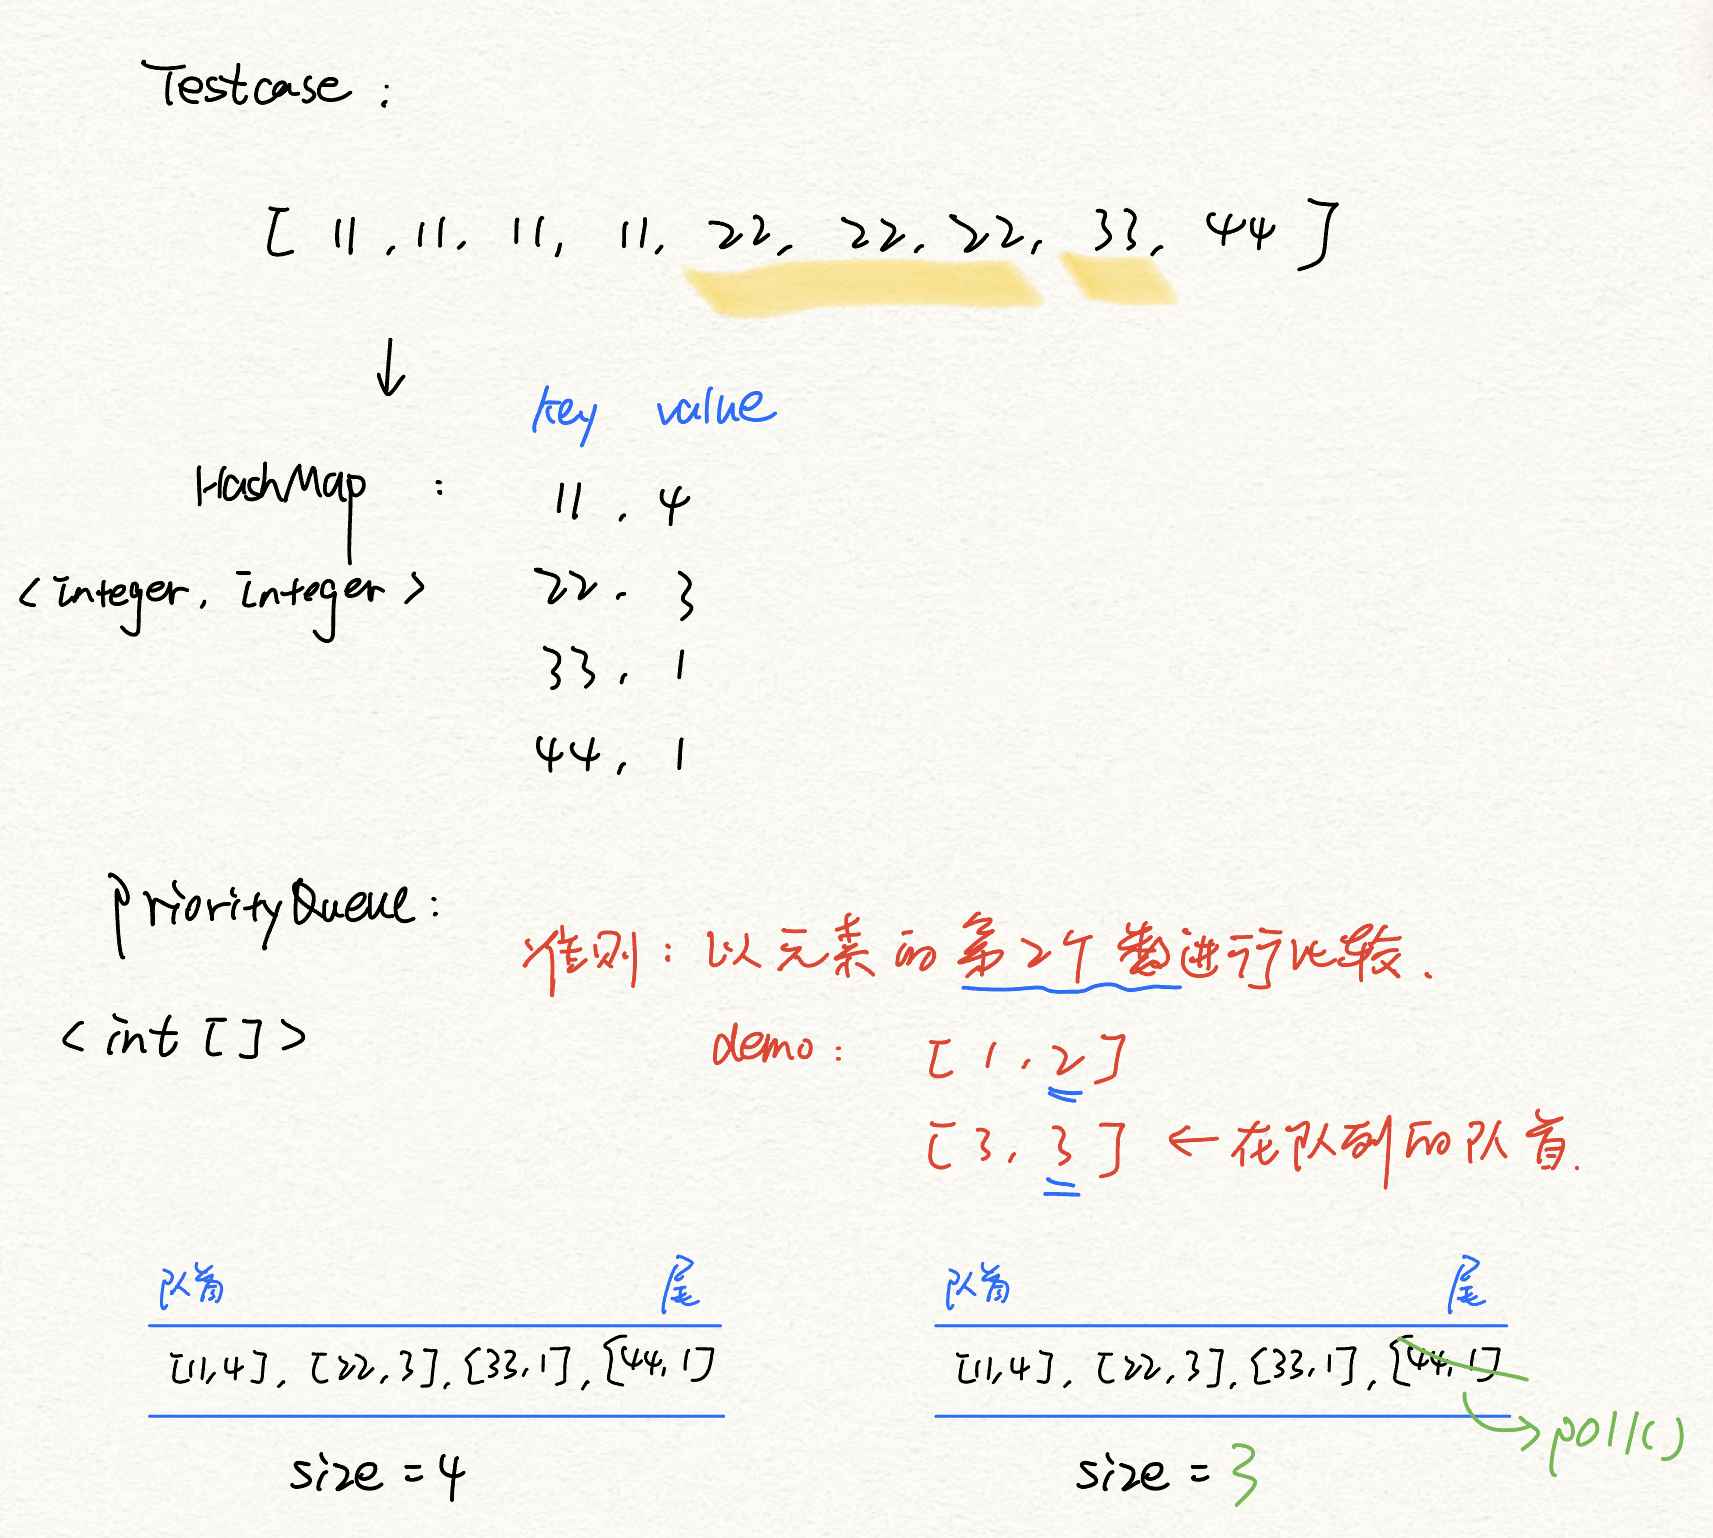 Testcase :
[ 11 , 11, 11, 11, 22, 22, 22, 33, 44 ]
↓
key value
HashMap : 11 , 4
<integer, Integer> 22 , 3
33 , 1
44 , 1
PriorityQueue :
准则：以元素的第2个数进行比较.
<int []>
demo : [ 1 , 2 ]
[ 3 , 3 ] ← 在队列的队首.
队首 尾
[11,4] , [22,3] , [33,1] , [44,1]
size = 4
队首 尾
[11,4] , [22,3] , [33,1] , [44,1]
→ poll()
size = 3